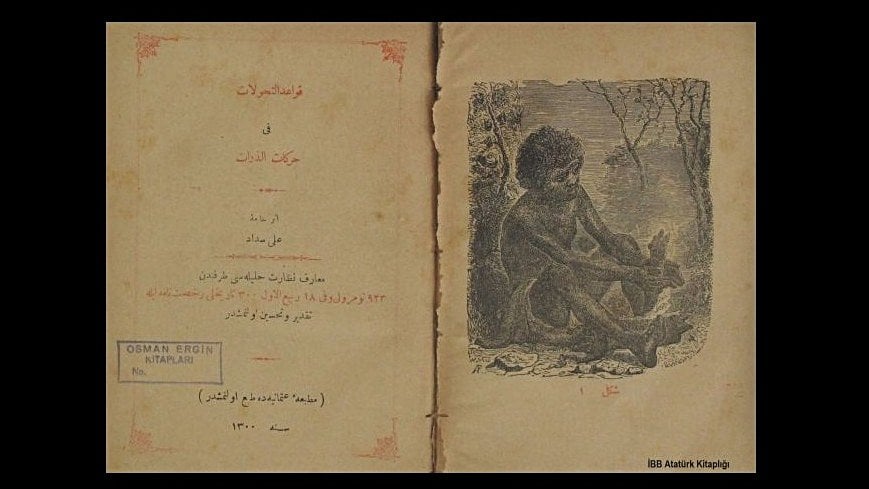 قواعد التحولات
فى
حركات الذرات
اثر خامهٔ
على سداد
معارف نظارت جليله‌سى طرفندن
٩٢٣ نومرولى وفى ١٨ ربيع الاول ٣٠٠ تاريخلى رخصتنامه ايله
تقدير و تحسين اولنمشدر
OSMAN ERGİN
KİTAPLARI
No.
( مطبعهٔ عثمانيه‌ده طبع اولنمشدر )
سنه ١٣٠٠
شكل ١
İBB Atatürk Kitaplığı